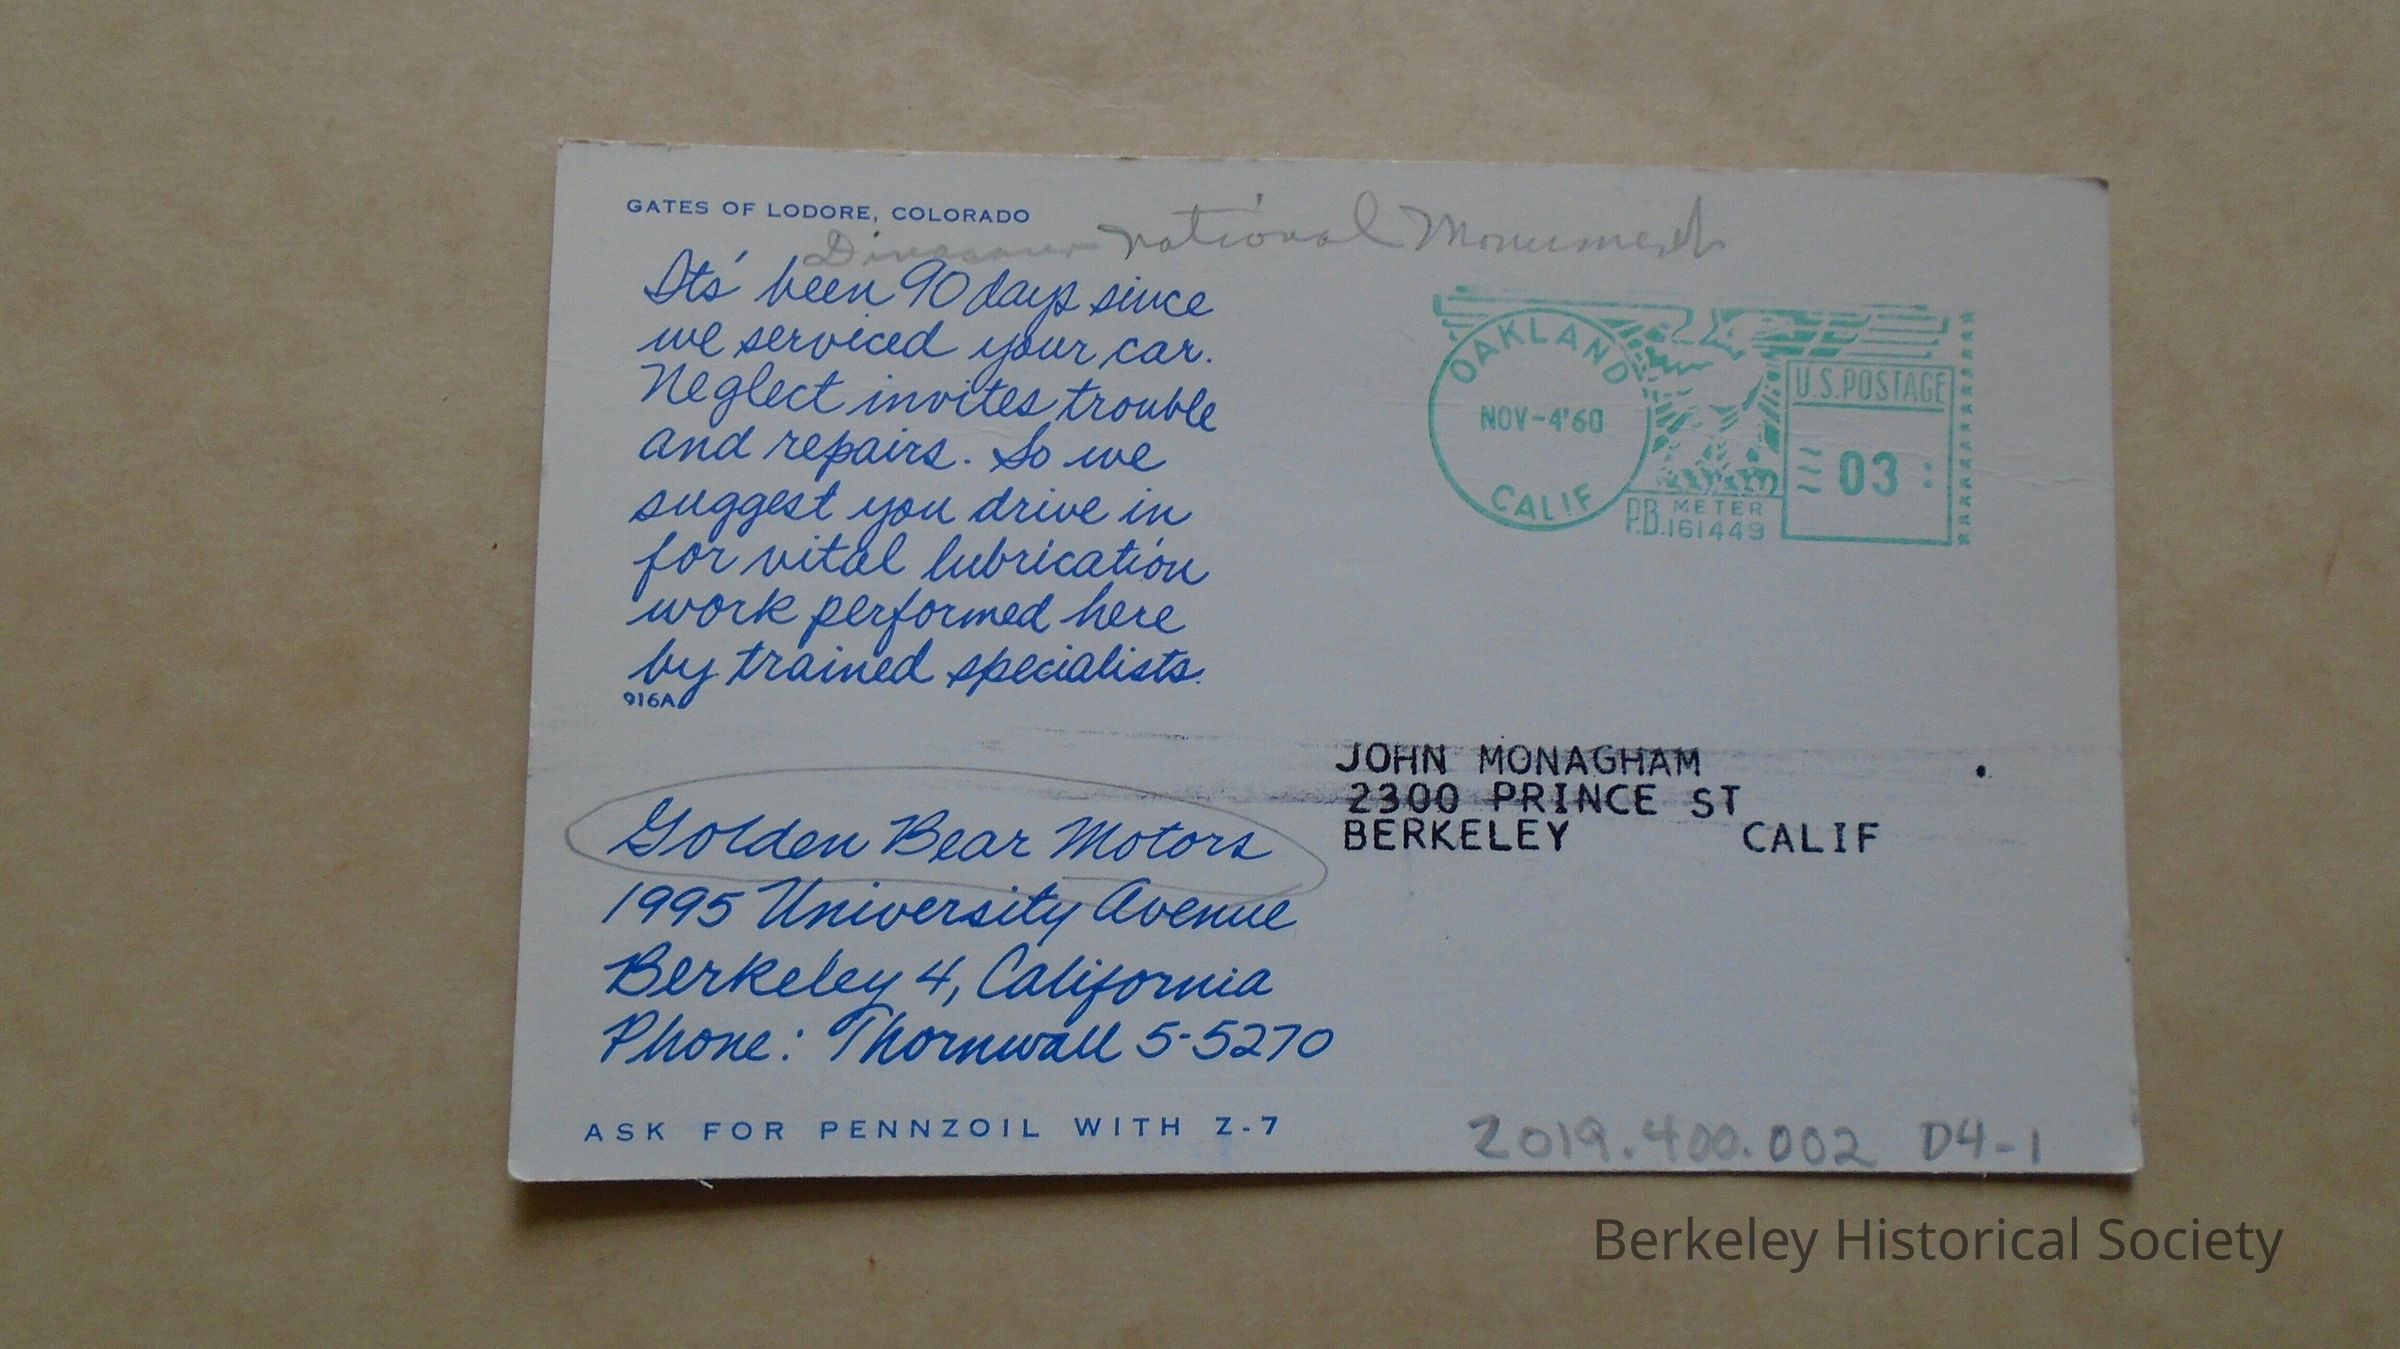 GATES OF LODORE, COLORADO
Dinosaur National Monument
Its' been 90 days since
we serviced your car.
Neglect invites trouble
and repairs. So we
suggest you drive in
for vital lubrication
work performed here
by trained specialists.
916A
OAKLAND
NOV-4'60
CALIF
P.B. METER
161449
U.S. POSTAGE
03
JOHN MONAGHAM
2300 PRINCE ST
BERKELEY CALIF
Golden Bear Motors
1995 University Avenue
Berkeley 4, California
Phone: Thornwall 5-5270
ASK FOR PENNZOIL WITH Z-7
2019.400.002 D4-1
Berkeley Historical Society